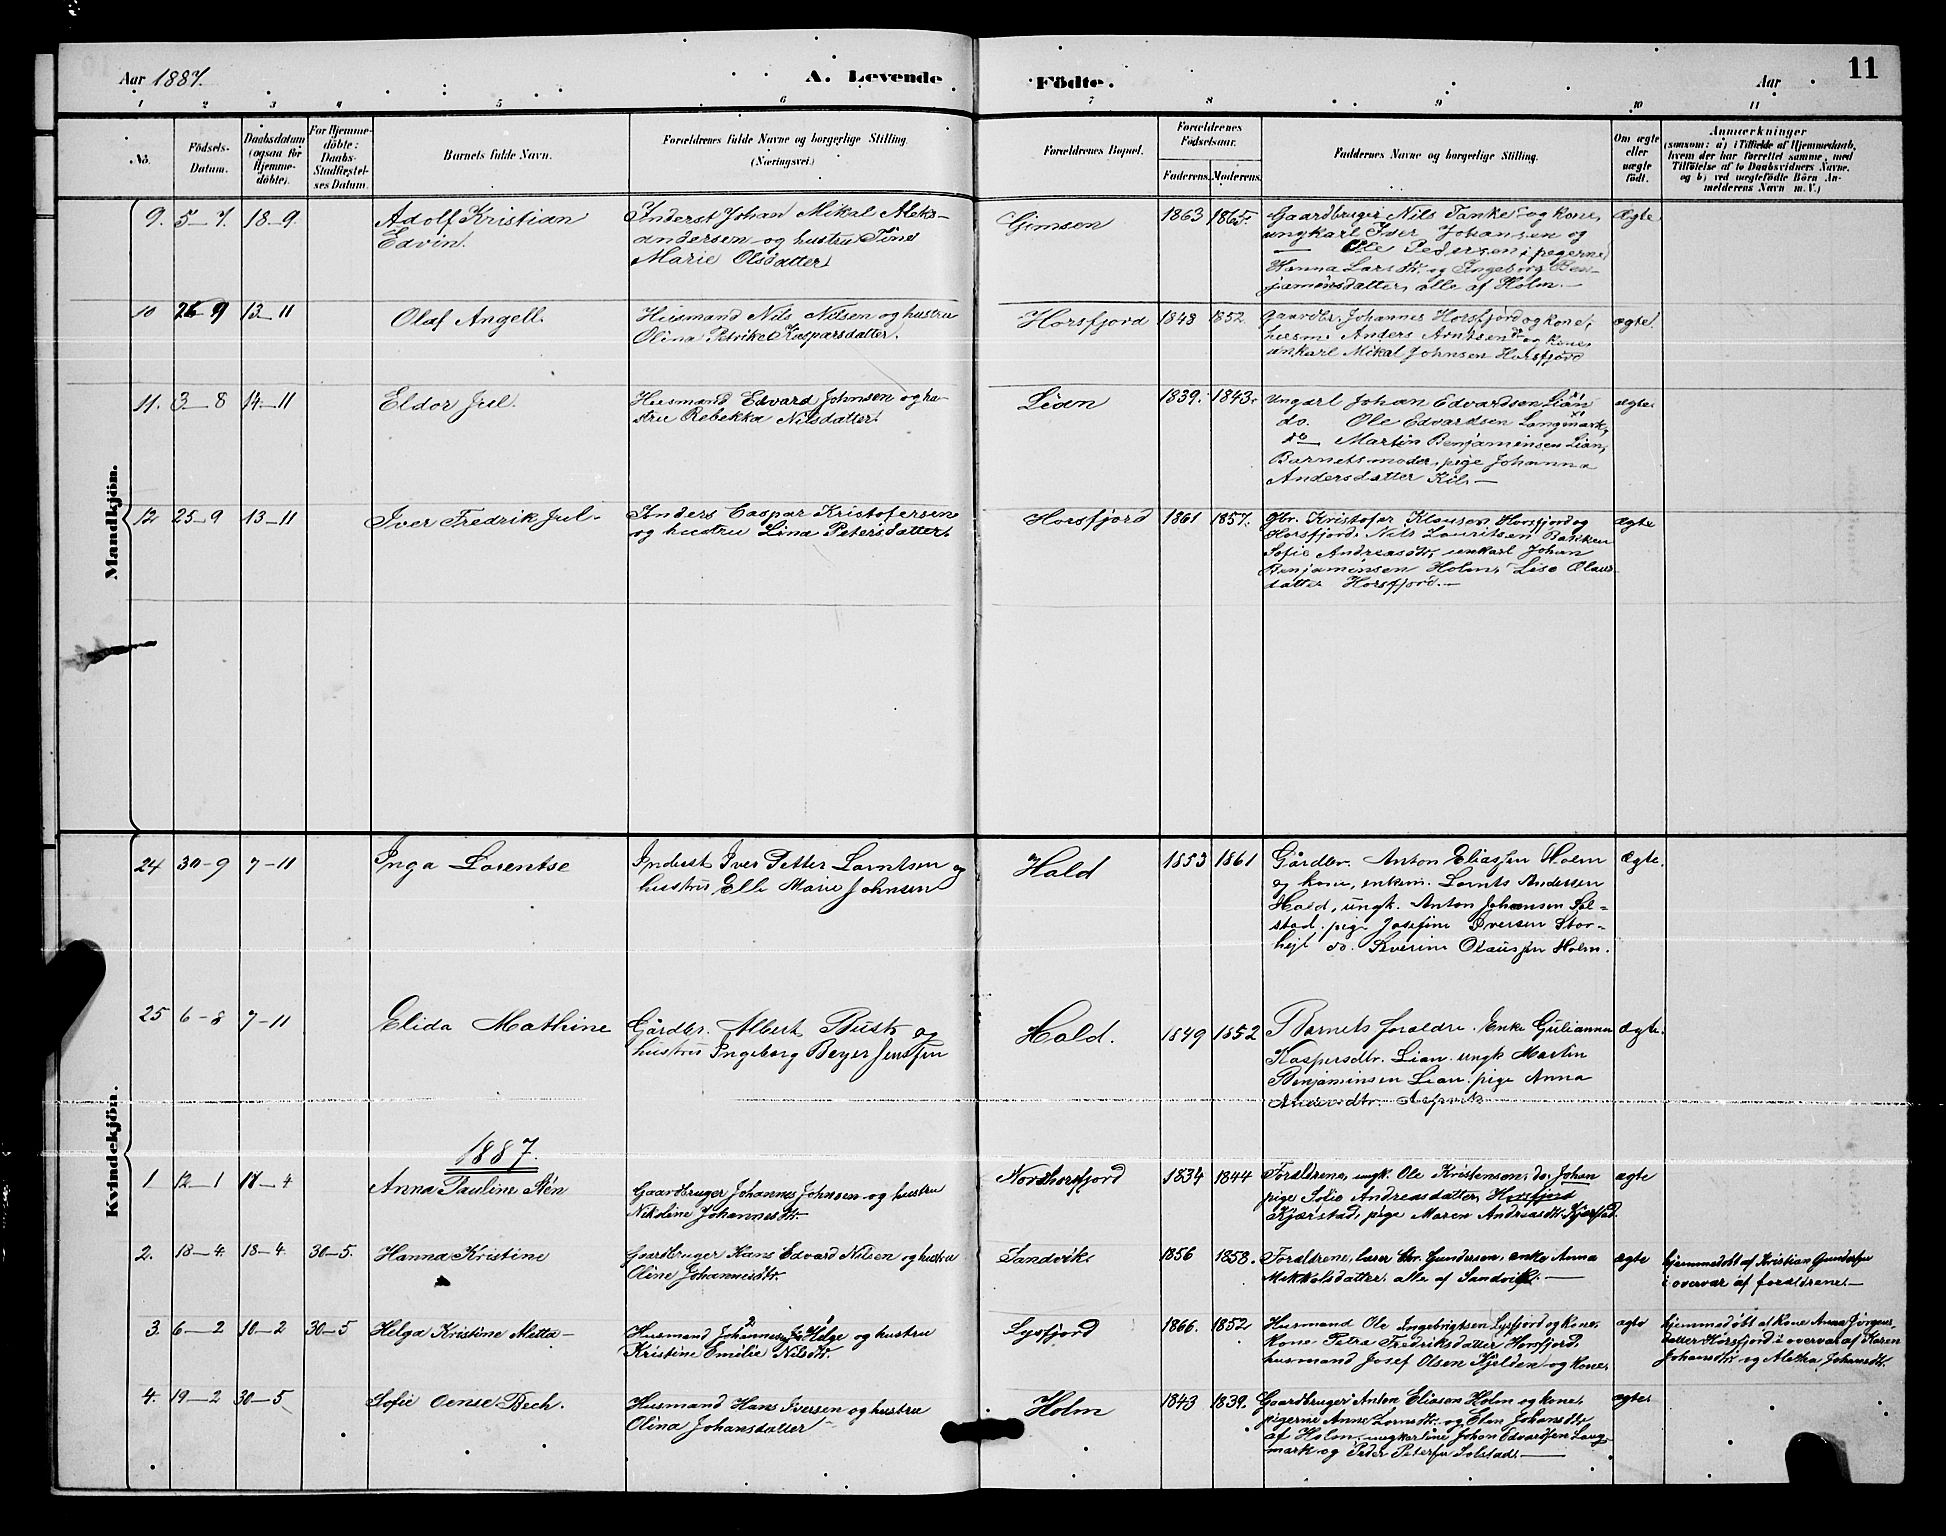 Aar 1887. A. Levende Födte. Aar 11
1 2 3 4 5 6 7 8 9 10 11
No. Födsels-Datum. Daabsdatum (ogsaa för Hjemme-döbte). For Hjemme-döbte: Daabs-Stadfæstel-ses Datum. Barnets fulde Navn. Forældrenes fulde Navne og borgerlige Stilling. (Næringsvei.) Forældrenes Bopæl. Forældrenes Födselsaar. Faderens. Moderens. Faddernes Navne og borgerlige Stilling. Om ægte eller uægte födt. Anmærkninger (saasom: a) i Tilfælde af Hjemmedaab, hvem der har forrettet samme, med Tilföielse af to Daabsvidners Navne, og b) ved uægtefödte Börn An-melderens Navn m. V.)
Mandkjön.
9. 5–7. 18–9. Adolf Kristian Inderst Johan Mikal Aleks- Gimsen 1863 1865. Gaardbruger Nils Tanke og kone, Ægte
Edvin. andersen og hustru Tine ungkarl Iver Johansen og
Marie Olsdatter. — Ole Pedersen, pigerne
Hanna Larsdtr. og Ingeborg Ben-
jaminsdatter, alle af Holm.
10 26–9 13–11 Olaf Angell. Husmand Nils Nilsen og hustru Horsfjord 1848 1852. Gaardbr. Johannes Horsfjord og kone, ægte.
Olina Petrikke Kasparsdatter. husm. Anders Arntsen og kone,
unkarl Mikal Johnsen Horsfjord
11. 3–8 14–11 Eldor Jul. Husmand Edvard Johnsen og hu- Lian 1839. 1843. Ungarl Johan Edvardsen Lian ægte.
stru Rebekka Nilsdatter. do. Ole Edvardsen Langmark,
do Martin Benjaminsen Lian,
Barnets moder, pige Johanna
Andersdatter Kil.
12 25–9 13–11 Iver Fredrik Jul. Inders Caspar Kristofersen Horsfjord 1861 1857. Gbr. Kristofer Klausen Horsfjord og ægte
og hustru Lina Petersdatter. Horsfjord, Nils Lauritsen
Sofie Andreasdtr, unkarl Johan
Benjaminsen Holm, Lise Olaus-
datter Horsfjord.
Kvindekjön.
24 30–9 7–11 Inga Lorentse Inderst Iver Petter Lorntsen og Hald 1853 1861 Gårdbr. Anton Eliassen Holm Ægte.
hustru Elli Marie Johnsen og kone, enkem. Lornts Andersen
Hald, ungk. Anton Johansen Sol-
stad. pige Josefine Iversen Stor-
hejl do. Severine Olaussen Holm.
25 6–8 7–11 Elida Mathine Gårdbr. Albert Busk og Hald. 1849 1852 Barnets foraldre. Enke Gulianna Ægte.
hustru Ingeborg Beyer Jenssen Kaspersdtr. Lian. ungk Martin
Benjaminsen Lian. pige Anna
Andersdtr.
1887.
1 12–1 17–4 Anna Pauline Stén Gaardbruger Johannes Johnsen og hustru Nordhorsfjord 1834 1844 Foraldrene, ungk. Ole Kristenson, do. Johan ægte
Nikoline Johannesdtr. pige Sofie Andreasdatter, Horsfjord
Kjærstad, pige Maren Andreasdtr. Kjærstad.
2. 18–4. 18–4. 30–5. Hanna Kristine Gaardbruger Hans Edvard Nilsen og hustru Sandvik. 1856 1858. Foraldrene, læser Chr. Gundersen, enke Anna ægte hjemmedøbt af Kristian Gundersen
Oline Johannesdtr. Mikkalsdatter, alle af Sandvik. i overvar af foraldrene.
3. 6–2 10–2 30–5 Helga Kristine Aletta Husmand Johannes Helge og hustru Lysfjord 1866. 1852 Husmand Ole Ingebrigtsen Lysfjord og kone, ægte hjemmedøbt af Kone Anna Jörgens-
Kristine Emilie Nilsdtr. Kone Petra Fredriksdatter Horsfjord, datter Horsfjord i overvar af Karen
husmand Josef Olsen Kjelden og kone. Johansdtr og Aletha Johansdtr.
4. 19–2 30–5 Sofie Oense Bech. Husmand Hans Iversen og hustru Holm 1843 1839. Gaardbruger Anton Eliasen Holm og kone, ægte.
Olina Johansdatter pigerne Anne Lorntsdtr. og Elen Johansdtr
af Holm, ungkarlene Johan Edvardsen Lang-
mark og Peder Petersen Solstad.